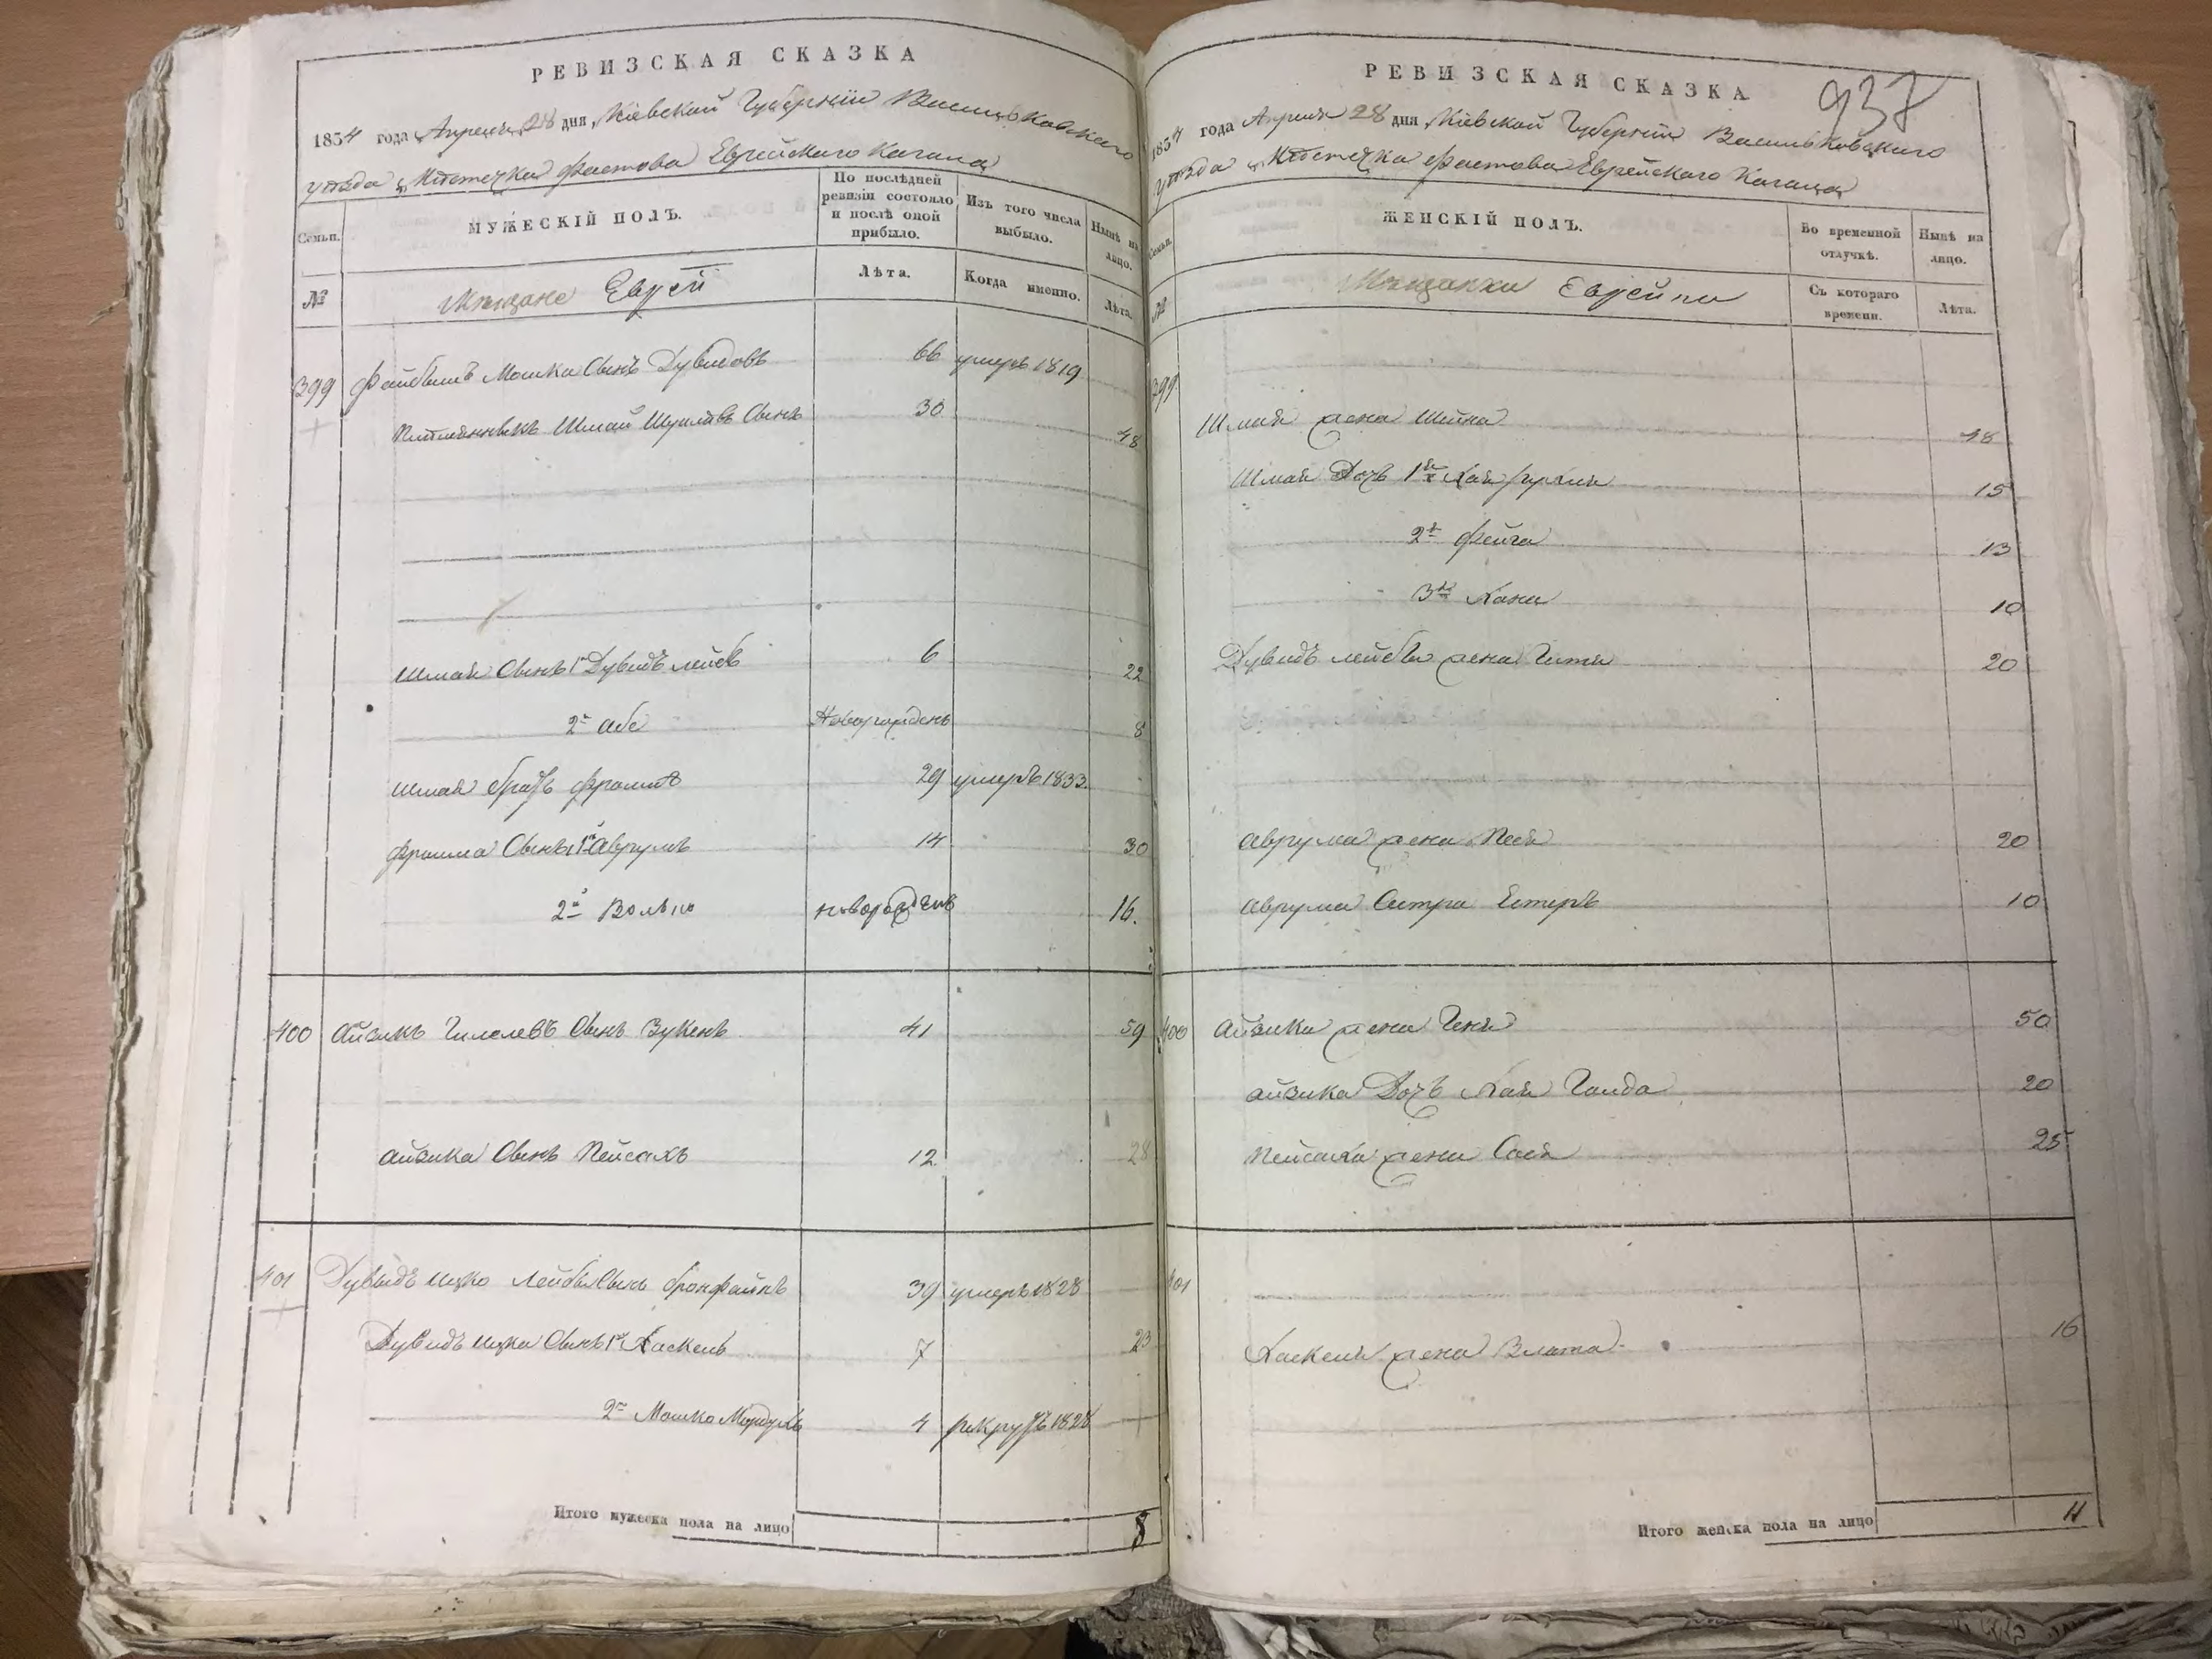 РЕВИЗСКАЯ СКАЗКА
1834 года Апреля 28 дня, Кіевской Губерніи Васильковского
уезда Местечка Фастова Еврейскаго Кагала
Семьи.
МУЖЕСКІЙ ПОЛЪ.
По послѣдней ревизіи состояло и послѣ оной прибыло.
Изъ того числа выбыло.
Нынѣ на лицо.
№
Мещане Евреи
Лѣта.
Когда именно.
Лѣта.
399 Файвишъ Мошка Сынъ Дувидовъ 66 умеръ 1819
Племянникъ Шмай Шулимъ Сынъ 30 48
Шмая Сынъ 1й Дувидъ лейба 6 22
2й абе Новорожденъ 8
шмая братъ фроимъ 29 умеръ 1833.
фроима Сынъ 1й Аврумъ 14 30
2й Волько новорожденъ 16.
400 Айзикъ Гилелевъ Сынъ Зукенъ 41 59
айзика Сынъ Пейсахъ 12 28
401 Дувидъ ицко Лейбы Сынъ бронфайнъ 39 умеръ 1828
Дувидъ ицка Сынъ 1й Хаскель 7 23
2й Мошко Мордухъ 4 рекрутъ 1828
Итого мужеска пола на лицо 8
РЕВИЗСКАЯ СКАЗКА
937
1834 года Апреля 28 дня, Кіевской Губерніи Васильковскаго
уезда Местечка Фастова Еврейскаго Кагала
Семьи.
ЖЕНСКІЙ ПОЛЪ.
Во временной отлучкѣ.
Нынѣ на лицо.
№
Мещанки Еврейки
Съ котораго времени.
Лѣта.
399
Шмая жена Шейна 48
Шмая Дочь 1я Хая 15
2я Фейга 13
3я Хана 10
Дувидъ лейбы жена Гитля 20
аврума жена Песя 20
аврума Сестра Естеръ 10
400 айзика жена Геня 50
айзика Дочь Хая Голда 20
Пейсаха жена Сося 25
401
Хаскеля жена Злата 16
Итого женска пола на лицо 11